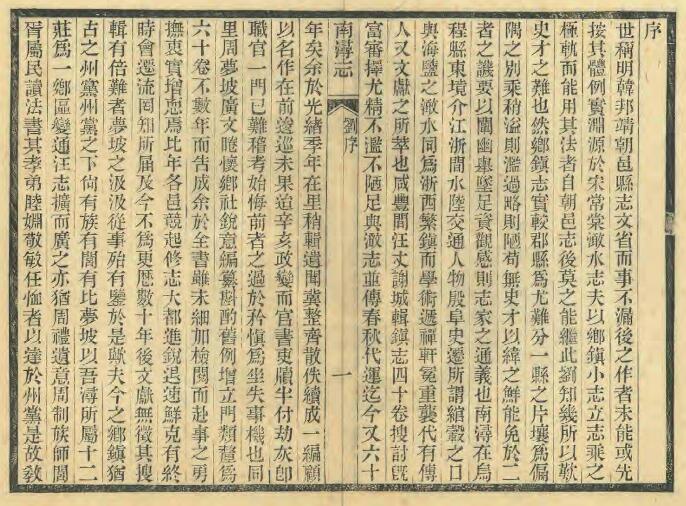 序
世稱明韓邦靖朝邑縣志文省而事不漏後之作者未能或先
按其體例實淵源於宋常棠澉水志夫以鄉鎮小志立志乘之
極軌而能用其法者自朝邑志後莫之能繼此劉知幾所以歎
史才之難也然鄉鎮志實較郡縣爲尤難分一縣之片壤爲偏
隅之別乘稍溢則濫過略則陋苟無史才以緯之鮮能免於二
者之譏要以闡幽舉墜足資觀感則志家之通義也南潯在烏
程縣東境介江浙間水陸交通人物殷阜史遷所謂綰轂之口
與海鹽之澉水同爲浙西繁鎮而學術遞禪軒冕重襲代有傳
人又文獻之所萃也咸豐間汪丈謝城輯鎮志四十卷搜討旣
富審擇尤精不濫不陋足與澉志並傳春秋代運迄今又六十
南潯志
劉序
一
年矣余於光緒季年在里稍輯遺聞冀整齊散佚續成一編顧
以名作在前逡巡未果迨辛亥政變而官書吏牘半付劫灰卽
職官一門已難稽考始悔前者之過於矜愼爲坐失事機也同
里周夢坡廣文睠懷鄉社銳意編纂斟酌舊例增立門類釐爲
六十卷不數年而告成余於全書雖未細加檢閱而赴事之勇
撫衷實增恧焉比年各邑競起修志大都進銳退速鮮克有終
時會遷流罔知所屆及今不爲更歷數十年後文獻無徵其搜
輯有倍難者夢坡之汲汲從事殆有鑒於是歟夫今之鄉鎮猶
古之州黨州黨之下尙有族有閭有比夢坡以吾潯所屬十二
莊爲一鄉區變通汪志擴而廣之亦猶周禮遺意周制族師閭
胥屬民讀法書其孝弟睦婣敬敏任恤者以達於州黨是故敎